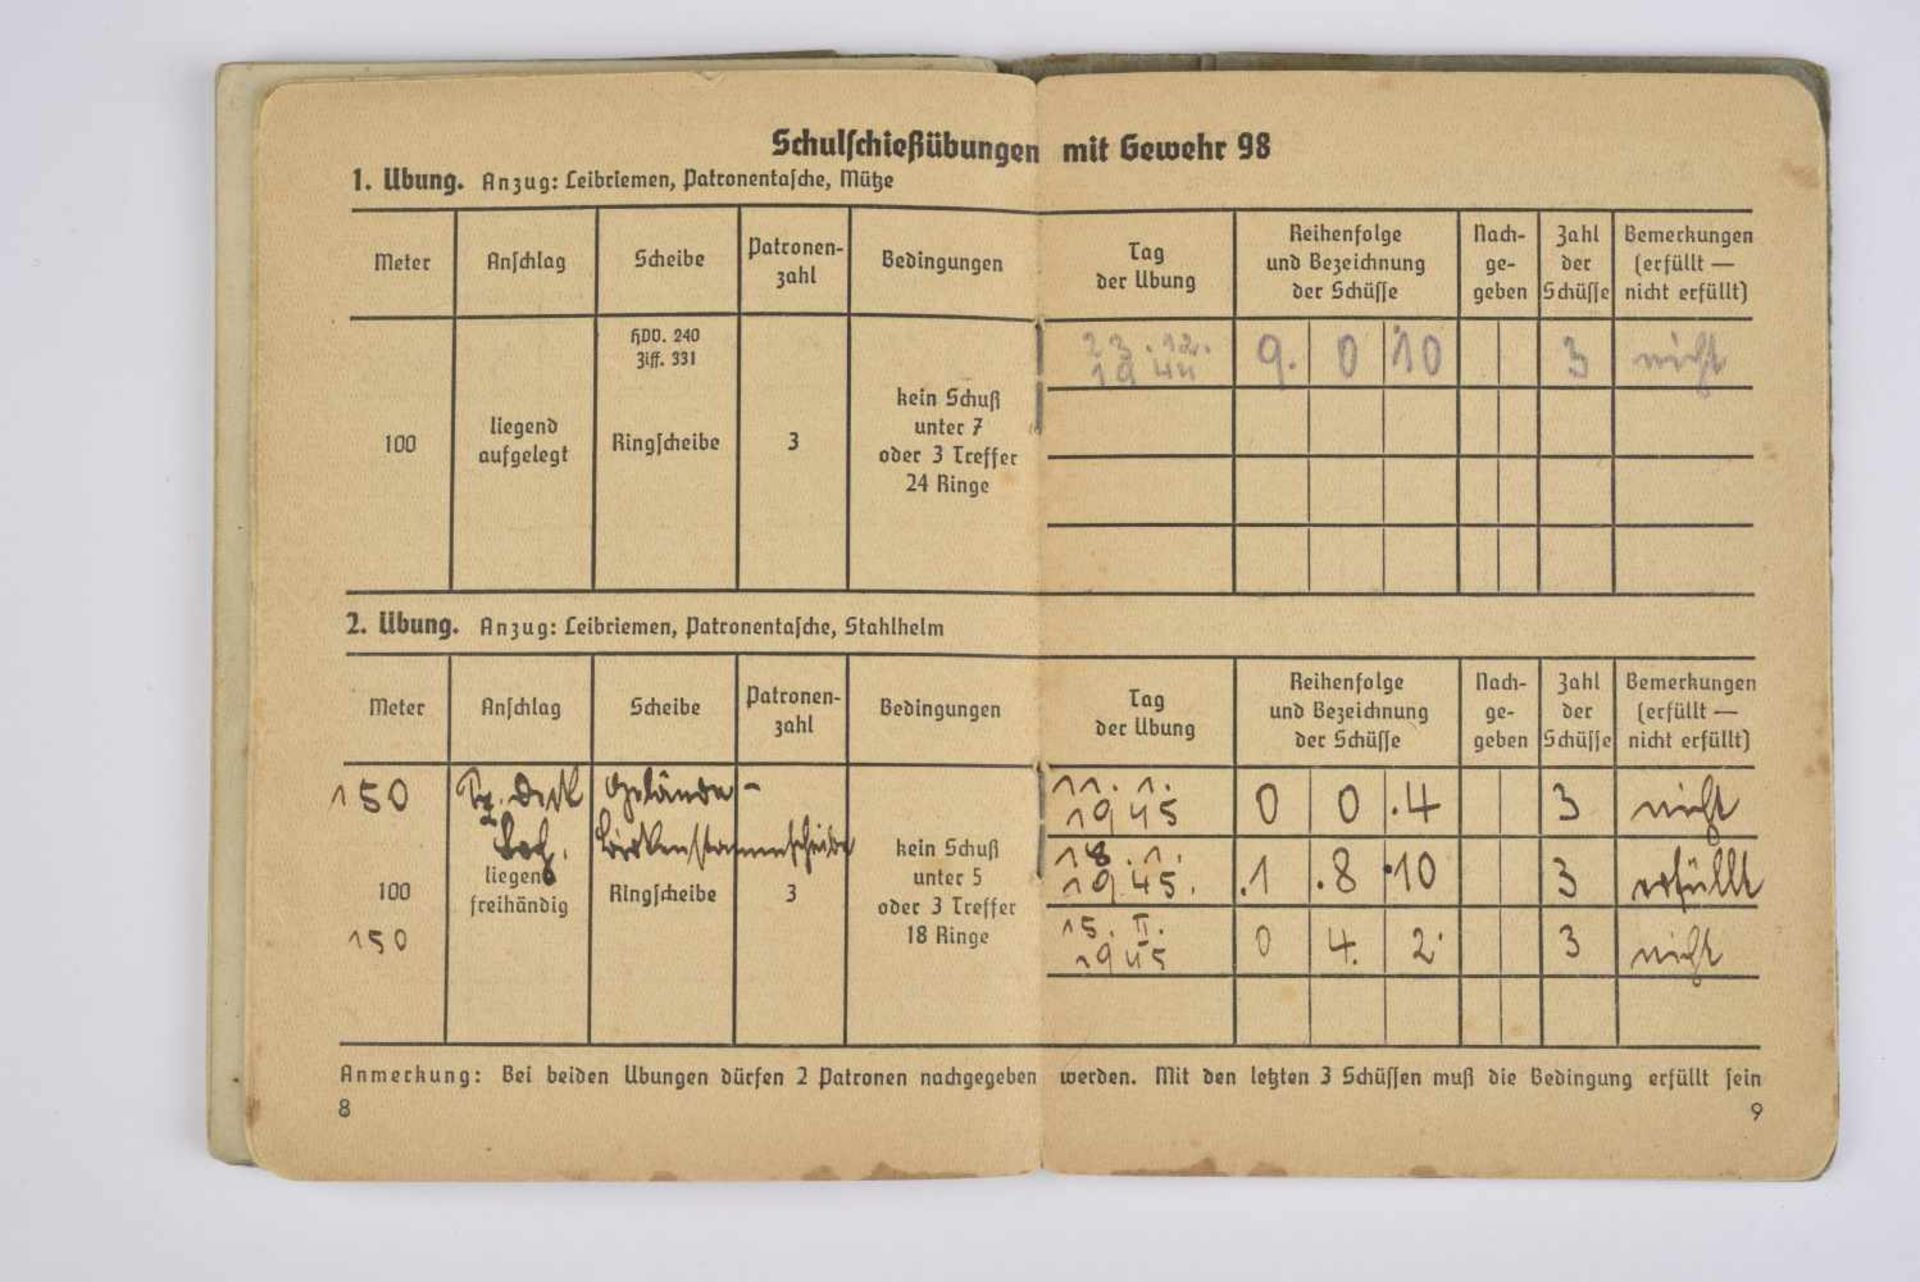 Schulschießübungen mit Gewehr 98
1. Übung. Anzug: Leibriemen, Patronentasche, Mütze
Meter
Anschlag
Scheibe
Patronen-
zahl
Bedingungen
Tag
der Übung
Reihenfolge
und Bezeichnung
der Schüsse
Nach-
ge-
geben
Zahl
der
Schüsse
Bemerkungen
(erfüllt —
nicht erfüllt)
100
liegend
aufgelegt
HDv. 240
Ziff. 331
Ringscheibe
3
kein Schuß
unter 7
oder 3 Treffer
24 Ringe
23.12.
1944
9. 0 10 3 nicht
2. Übung. Anzug: Leibriemen, Patronentasche, Stahlhelm
Meter
Anschlag
Scheibe
Patronen-
zahl
Bedingungen
Tag
der Übung
Reihenfolge
und Bezeichnung
der Schüsse
Nach-
ge-
geben
Zahl
der
Schüsse
Bemerkungen
(erfüllt —
nicht erfüllt)
150
Gelände-
Birkenstammscheibe
100
liegend
freihändig
Ringscheibe
3
150
kein Schuß
unter 5
oder 3 Treffer
18 Ringe
11. 1.
1945
0 0 .4 3 nicht
18. 1.
1945.
.1 .8 .10 3 erfüllt
15. II.
1945
0 4. 2 3 nicht
Anmerkung: Bei beiden Übungen dürfen 2 Patronen nachgegeben werden. Mit den letzten 3 Schüssen muß die Bedingung erfüllt sein
8
9